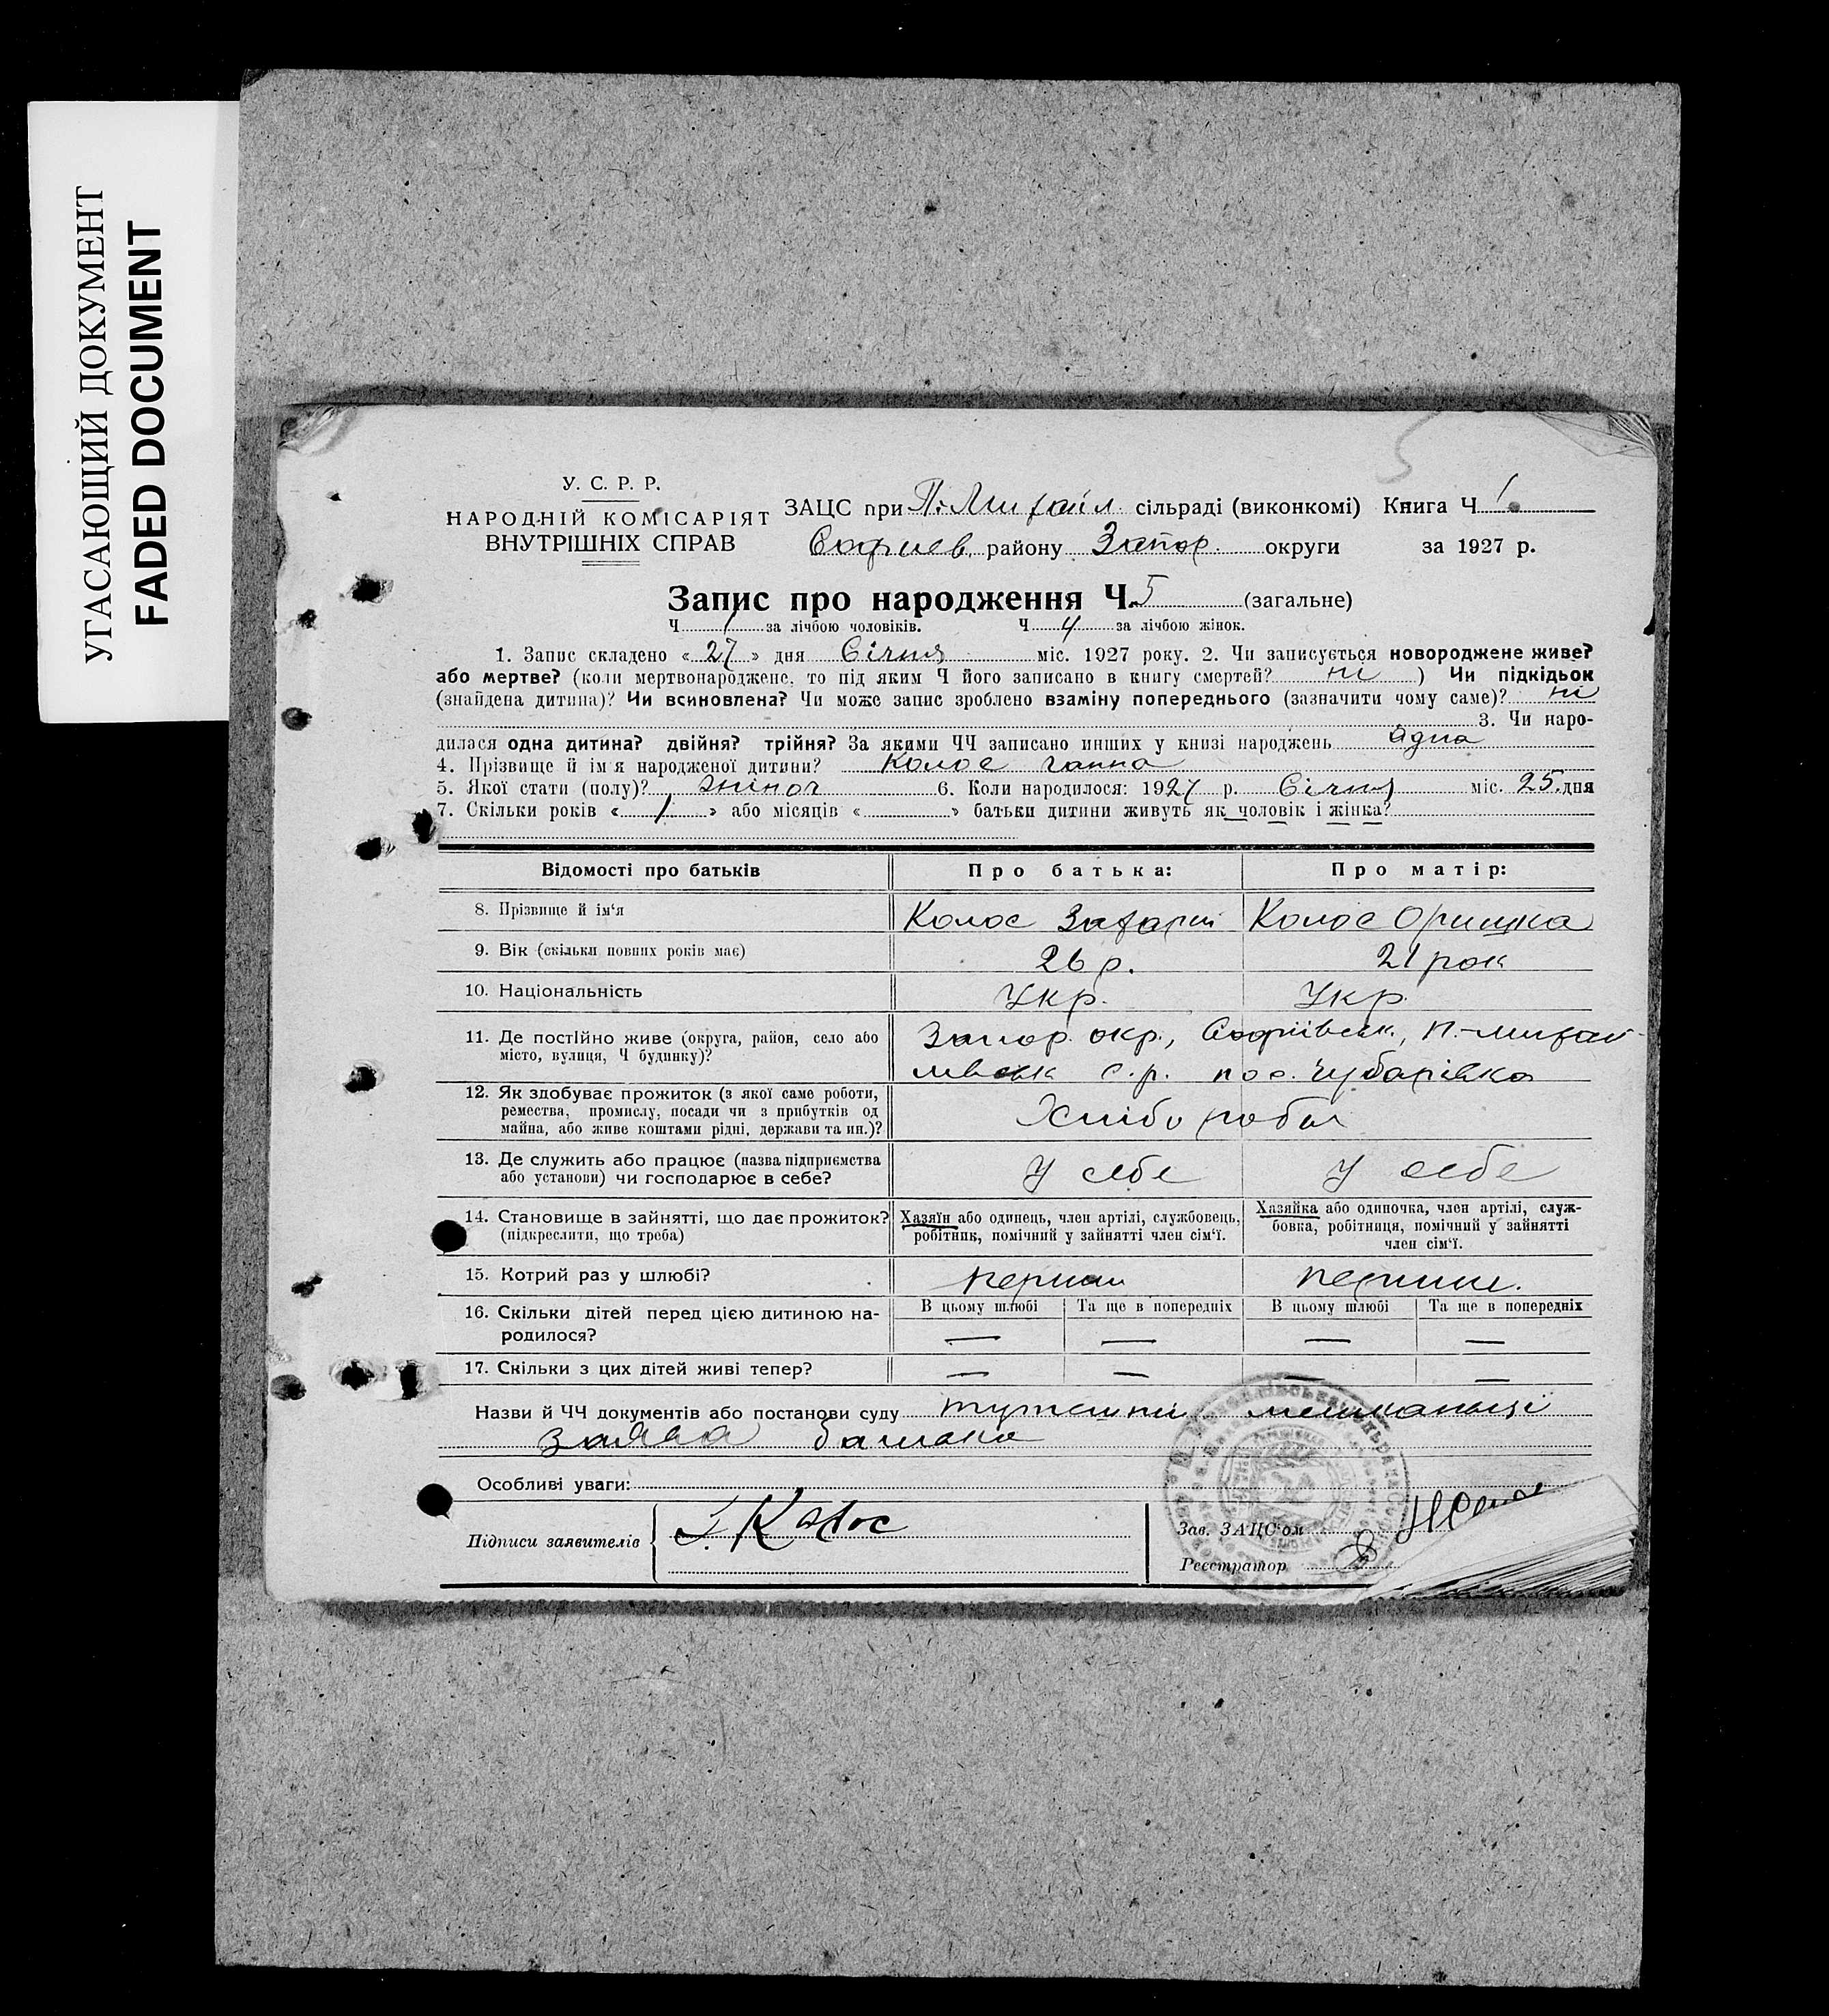 УГАСАЮЩИЙ ДОКУМЕНТ
FADED DOCUMENT
5
У. С. Р. Р.
НАРОДНІЙ КОМІСАРІЯТ
ВНУТРІШНІХ СПРАВ
ЗАЦС при П.-Михайл. сільраді (виконкомі) Книга Ч 1
Софиев. району Запор. округи за 1927 р.
Запис про народження Ч. 5 (загальне)
Ч 1 за лічбою чоловіків. Ч 4 за лічбою жінок.
1. Запис складено « 27 » дня Січня міс. 1927 року. 2. Чи записується новороджене живе?
або мертве? (коли мертвонароджене, то під яким Ч його записано в книгу смертей? ні ) Чи підкідьок
(знайдена дитина)? Чи всиновлена? Чи може запис зроблено взаміну попереднього (зазначити чому саме)? ні
3. Чи наро-
дилася одна дитина? двійня? трійня? За якими ЧЧ записано инших у книзі народжень одна
4. Прізвище й ім'я народженої дитини? Колос Ганна
5. Якої стати (полу)? жіноч 6. Коли народилося: 1927 р. Січня міс. 25 дня
7. Скільки років « 1 » або місяців « » батьки дитини живуть як чоловік і жінка?
Відомості про батьків
Про батька:
Про матір:
8. Прізвище й ім'я Колос Захарій Колос Оришка
9. Вік (скільки повних років має) 26 р. 21 рок
10. Національність Укр. Укр.
11. Де постійно живе (округа, район, село або
місто, вулиця, Ч будинку)?
Запор. окр., Софіївськ., П.-Михай-
лівськ с.р. пос. Чубарівка
12. Як здобуває прожиток (з якої саме роботи,
ремества, промислу, посади чи з прибутків од
майна, або живе коштами рідні, держави та ин.)?
Хлібороби
13. Де служить або працює (назва підприємства
або установи) чи господарює в себе?
У себе У себе
14. Становище в зайнятті, що дає прожиток?
(підкреслити, що треба)
Хазяїн або одинець, член артілі, службовець,
робітник, помічний у зайнятті член сім'ї.
Хазяйка або одиночка, член артілі, служ-
бовка, робітниця, помічний у зайнятті
член сім'ї.
15. Котрий раз у шлюбі? перший перший.
16. Скільки дітей перед цією дитиною на-
родилося?
В цьому шлюбі Та ще в попередніх В цьому шлюбі Та ще в попередніх
— — — —
17. Скільки з цих дітей живі тепер? — — — —
Назви й ЧЧ документів або постанови суду тутешні мешканці
Заява батька
Особливі уваги:
Підписи заявителів Колос
Зав. ЗАЦС'ом
Реєстратор